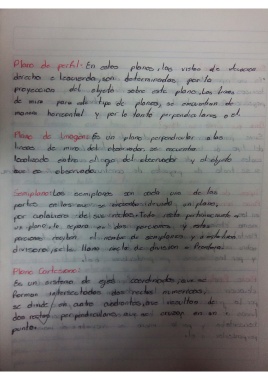 Plano de perfil: En estos planos, las vistas de
derecha e izquierda, son determinadas por la
proyeccion del objeto sobre este plano, Las lineas
de mira para este tipo de planos, se encuentran de
manera horizontal y por lo tanto perpendiculares a el.
Plano de Imagen: Es un plano perpendicular a las
lineas de mira del observador, se encuentra
localizado entre el ojo del observador y el objeto
que es observado.
Semiplano: Los semiplanos son cada una de las
partes en las que se encuentra dividido un plano,
por cualquiera de sus rectas. Toda recta perteneciente a
un plano, lo separa en dos porciones, y estas
porciones reciben el nombre de semiplanos y a la
divisoria, se les llama recta de division o frontera.
Plano Cartesiano:
Es un sistema de ejes coordenados, que se
forman intersectandose dos rectas numericas,
se divide en cuatro cuadrantes, que resultan de
dos rectas perpendiculares que se cruzan en un
punto.